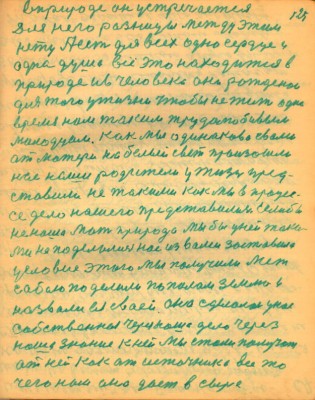 в природе он встречается 125
Для него разницы между этим
нету Аест для всех одно сердце и
одна душа Всё это находится в
природе и в человеке оно рождено
для того у жизни чтобы не тит одно
время нам таким трудолюбивым
молодцам. Как мы одинаково с вами
от матери на белый свет произошли
нас наши родители у жизни пред-
ставили не такими как мы в процес-
се дело нашего представились Если бы
не наша мать природа мы бы у ней таки-
ми не поделились нас из вами заставило
условие этого мы получили мет
собою поделили пополам землю и
назвали ея своей она сделалася у нас
собственная Через наше дело через
наше знание к ней мы стали получат
от ней как от источника все то
чего нам оно дает в сыре